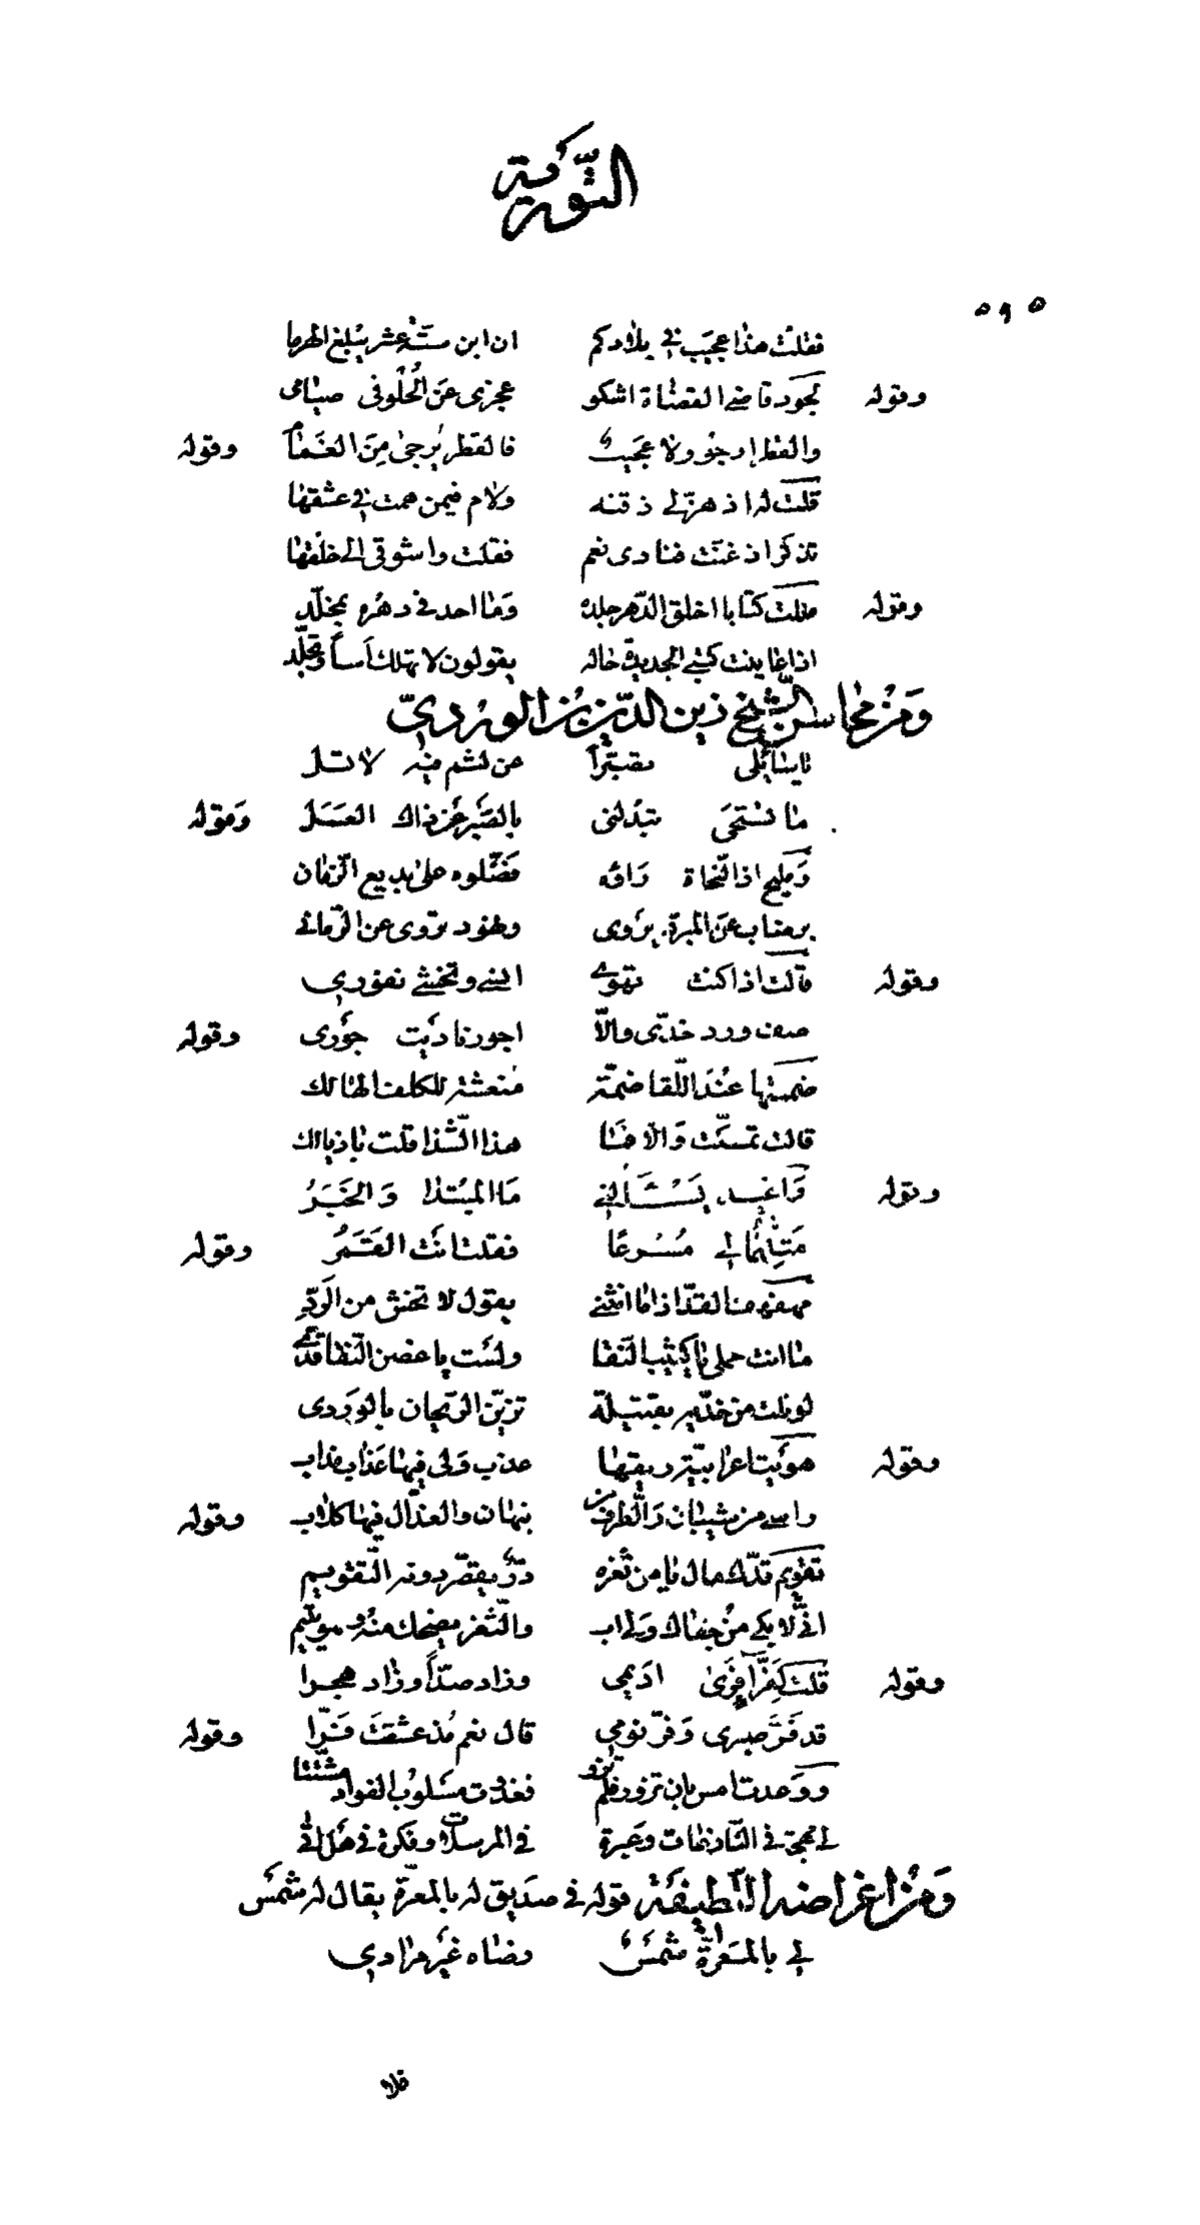 التورية
٥٩٥
فقلت هذا عجيب في بلادكم ان ابن ستة عشر يبلغ الهرما
وقوله لجود قاضي القضاة اشكو عجزى عن الحلو في صيامى
والقطر ارجو ولا عجيب فالقطر يرجى من الغمام وقوله
قلت له اذ هز لي ذقنه ولام فيمن همت في عشقها
تذكر اذ غنت فنادى نعم فقلت واشوقي الى خلقها
وقوله ملكت كتابا اخلق الدهر جلده وما احد في دهره بمخلد
اذا عاينت كتبي الجديدة حاله يقولون لا تهلك أسا وتجلد
ومن محاسن الشيخ زين الدين بن الوردي
يا سائلى تصبرا عن لثم فيه لا تسل
ما تستحى تبدلنى بالصبر عن ذاك العسل وقوله
ومليح اذا النحاة راوه فضلوه على بديع الزمان
برضاب عن المبرد يروى ونهود تروى عن الرماني
وقوله قالت اذا كنت تهوى انسي وتخشى نفوري
صف ورد خدى والا اجور ناديت جورى وقوله
ضممتها عند اللقا ضمة منعشة للكلف الهالك
قالت تمسكت والا فما هذا الشذا قلت باذيالك
وقوله واغيد يسألني ما المبتدا والخبر
مثلهما لي مسرعا فقلت انت القمر وقوله
مهفهف القد اذا ما انثنى يقول لا تخش من الرد
ما انت حملى يا كثيب النقا ولست يا غصن النقا قدى
لو نلت من خده بقبيلة تزين الريحان بالوردى
وقوله هويت اعرابية ريقها عذب ولى فيها عذاب مذاب
راسي من شيبان والطرف من نبهان والعذال فيها كلاب وقوله
تقويم قدك مال يا من ثغره در يقصر دونه التقويم
اني لابكي من جفاك والثغر يضحك منه وهو يتيم
وقوله قلت ادمى وزاد صدا وزاد هجرا
قد فر صبرى وفر نومي قال نعم مذ عشقت فرا وقوله
ووعدت امس بان تزور فلم تزر فغدوت مسلوب الفواد مشتتا
لي مهجة في النازعات وعبرة في المرسلات وفكرة في هل اتى
ومن اغراضه اللطيفة قوله في صديق له بالمعرة يقال له شمس
لي بالمعرة شمس رضاه غير مرادي
فلا